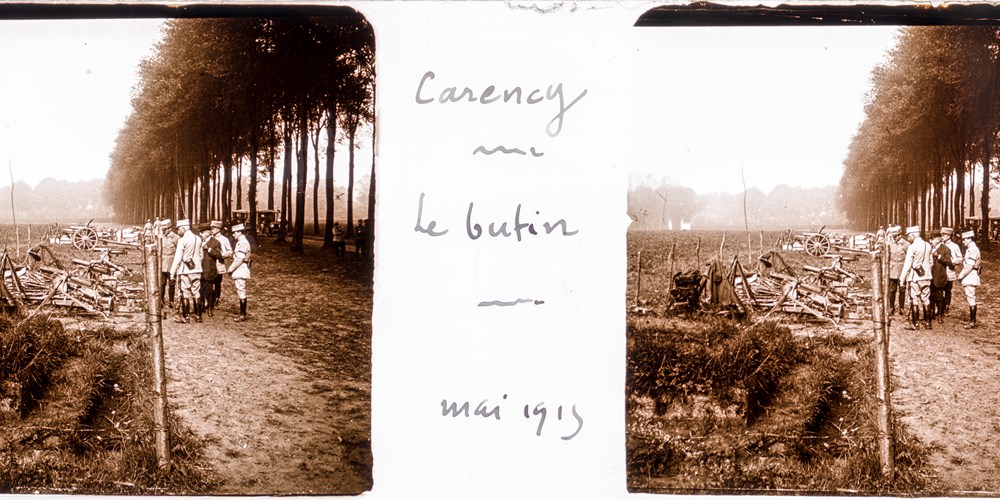 Carency
Le butin
mai 1915